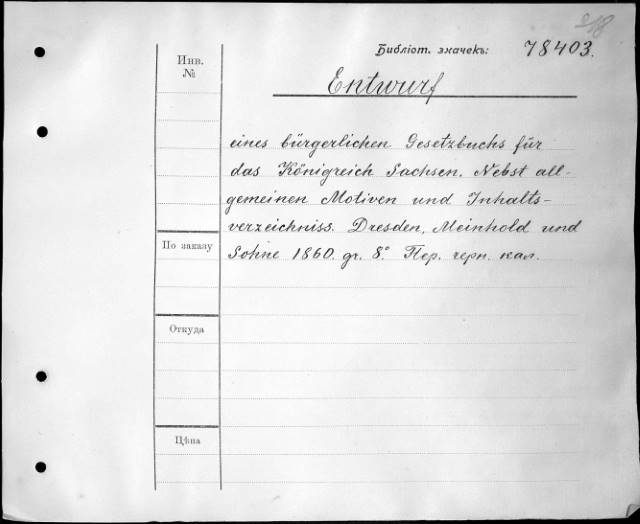 218
Библіот. значекъ: 78403.
Инв.
№
Entwurf
eines bürgerlichen Gesetzbuchs für
das Königreich Sachsen. Nebst all-
gemeinen Motiven und Inhalts-
verzeichniss. Dresden, Meinhold und
Söhne 1860. gr. 8° Пер. черн. кал.
По заказу
Откуда
Цѣна